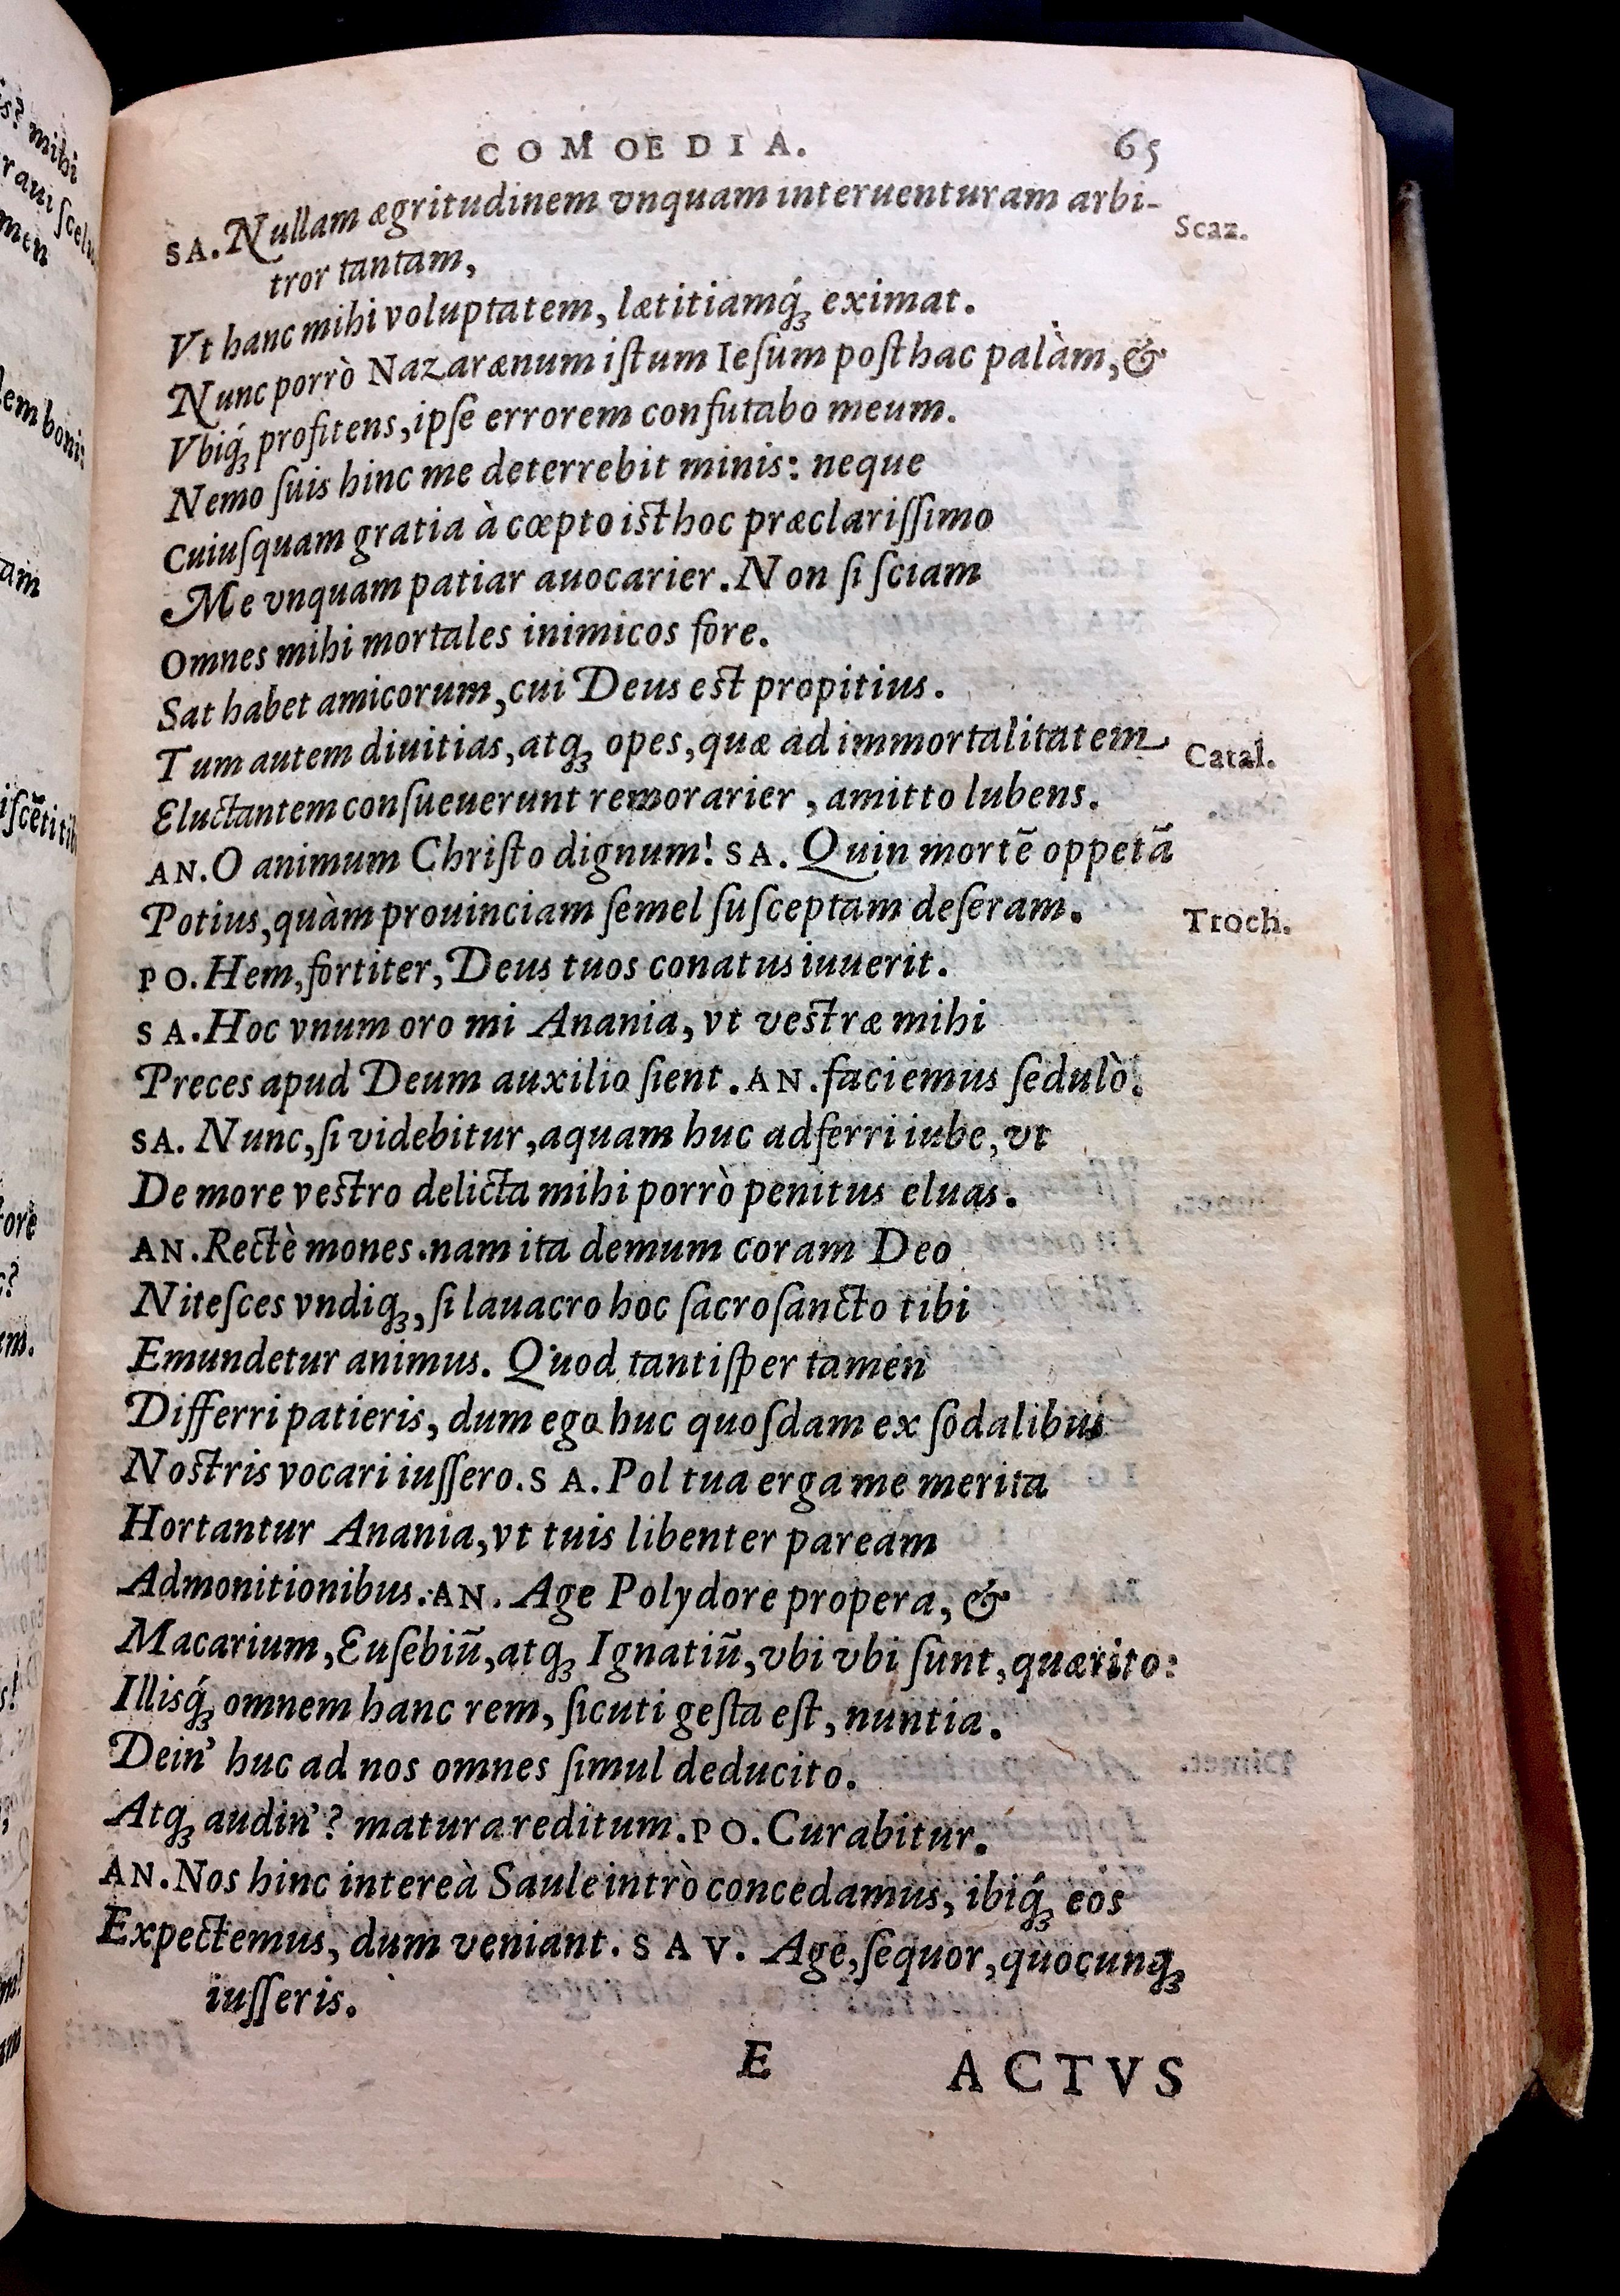 COMOEDIA. 65
SA. Nullam ægritudinem vnquam interuenturam arbi-
tror tantam, Scaz.
Vt hanc mihi voluptatem, lætitiamq́ꝫ eximat.
Nunc porrò Nazarænum iſtum Ieſum poſthac palàm, &
Vbiq́ꝫ profitens, ipſe errorem confutabo meum.
Nemo ſuis hinc me deterrebit minis: neque
Cuiuſquam gratia à cœpto iſthoc præclariſſimo
Me vnquam patiar auocarier. Non ſi ſciam
Omnes mihi mortales inimicos fore.
Sat habet amicorum, cui Deus eſt propitius.
Tum autem diuitias, atqꝫ opes, quæ ad immortalitatem Catal.
Eluctantem conſueuerunt remorarier, amitto lubens.
AN. O animum Chriſto dignum! SA. Quin mortē oppetā
Potius, quàm prouinciam ſemel ſuſceptam deſeram. Troch.
PO. Hem, fortiter, Deus tuos conatus iuuerit.
SA. Hoc vnum oro mi Anania, vt veſtræ mihi
Preces apud Deum auxilio ſient. AN. faciemus ſedulò.
SA. Nunc, ſi videbitur, aquam huc adferri iube, vt
De more veſtro delicta mihi porrò penitus eluas.
AN. Rectè mones. nam ita demum coram Deo
Niteſces vndiqꝫ, ſi lauacro hoc ſacroſancto tibi
Emundetur animus. Quod tantiſper tamen
Differri patieris, dum ego huc quoſdam ex ſodalibus
Noſtris vocari iuſſero. SA. Pol tua erga me merita
Hortantur Anania, vt tuis libenter paream
Admonitionibus. AN. Age Polydore propera, &
Macarium, Euſebiū, atqꝫ Ignatiū, vbi vbi ſunt, quærito:
Illiſq́ꝫ omnem hanc rem, ſicuti geſta eſt, nuntia.
Dein' huc ad nos omnes ſimul deducito.
Atqꝫ audin'? matura reditum. PO. Curabitur.
AN. Nos hinc intereà Saule intrò concedamus, ibiq́ꝫ eos
Expectemus, dum veniant. SAV. Age, ſequor, quocunqꝫ
iuſſeris.
E ACTVS